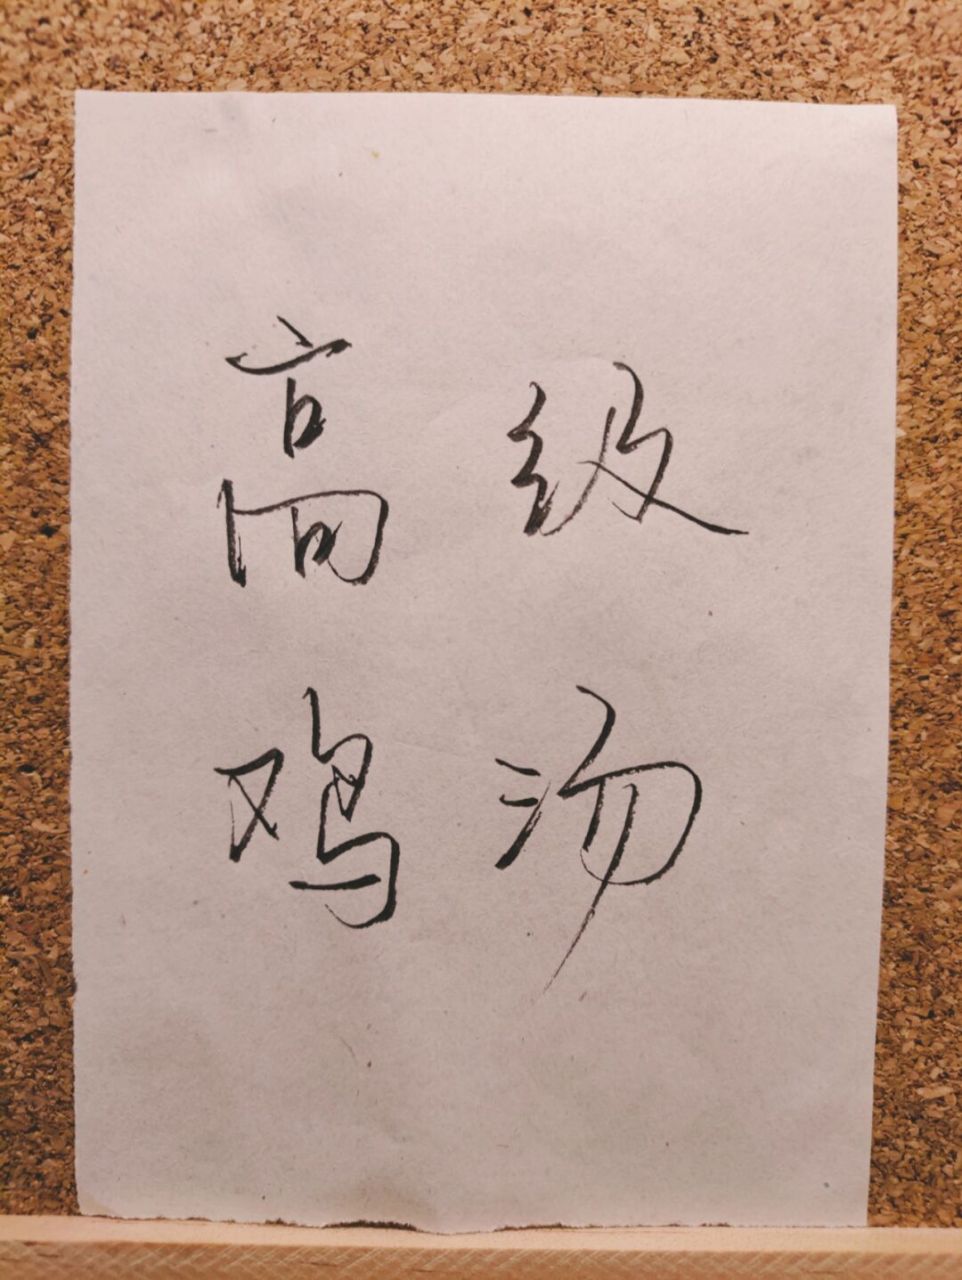 高级
鸡汤